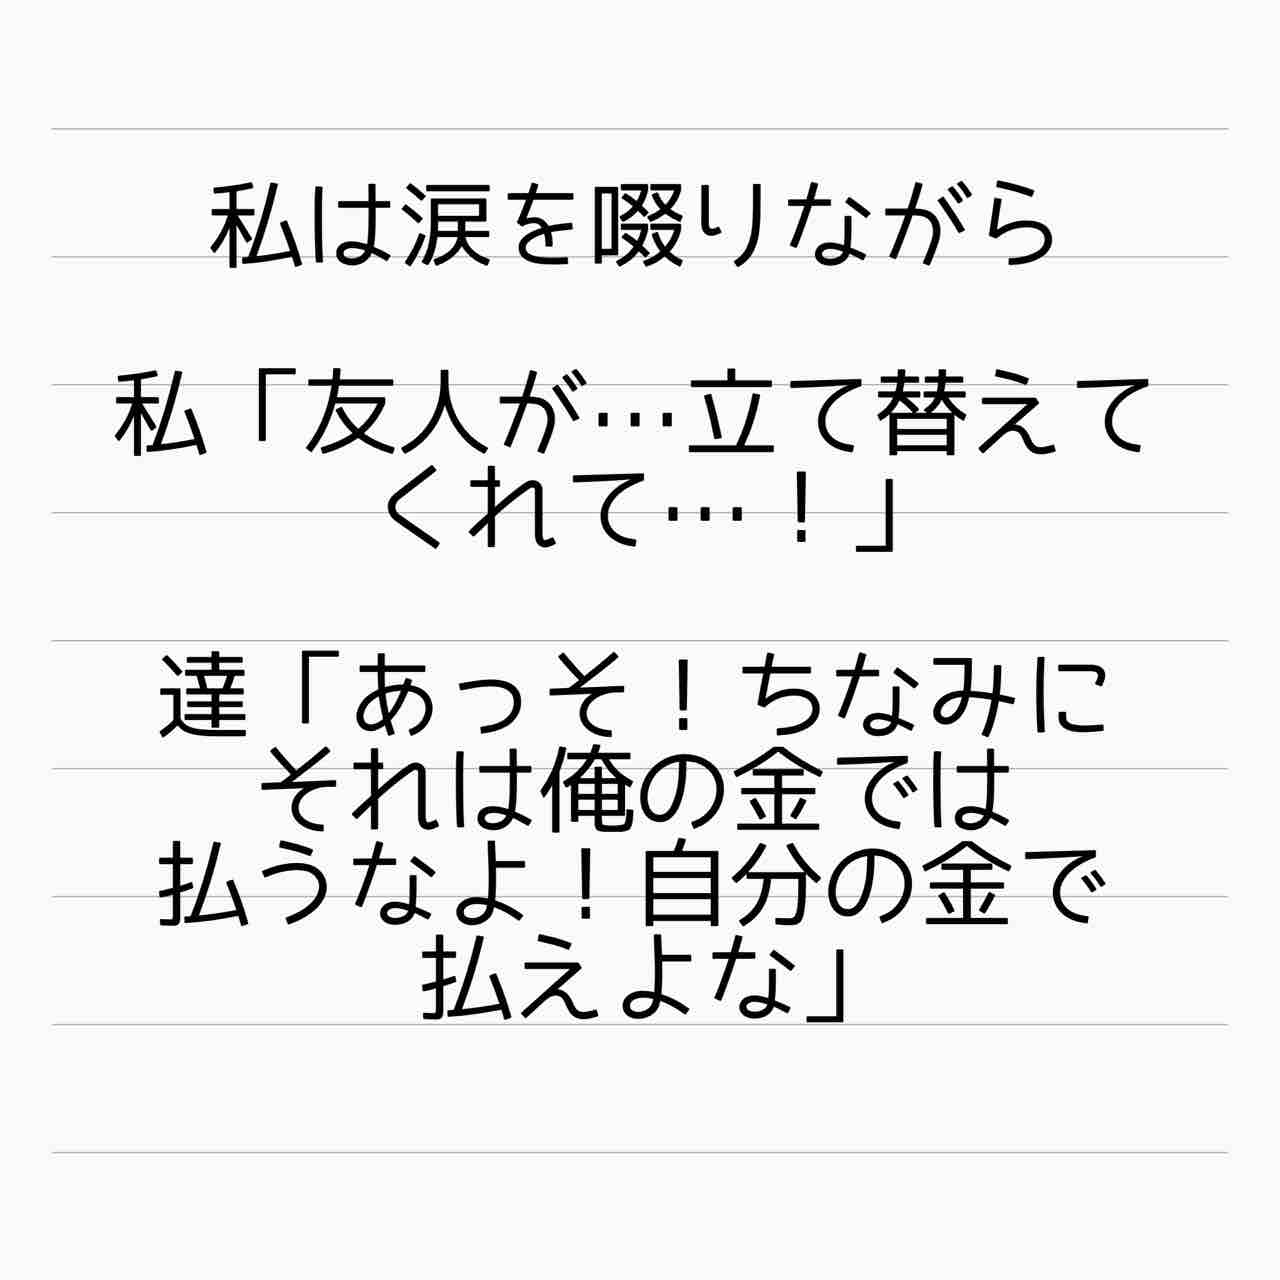 私は涙を啜りながら
私「友人が…立て替えて
くれて…！」
達「あっそ！ちなみに
それは俺の金では
払うなよ！自分の金で
払えよな」